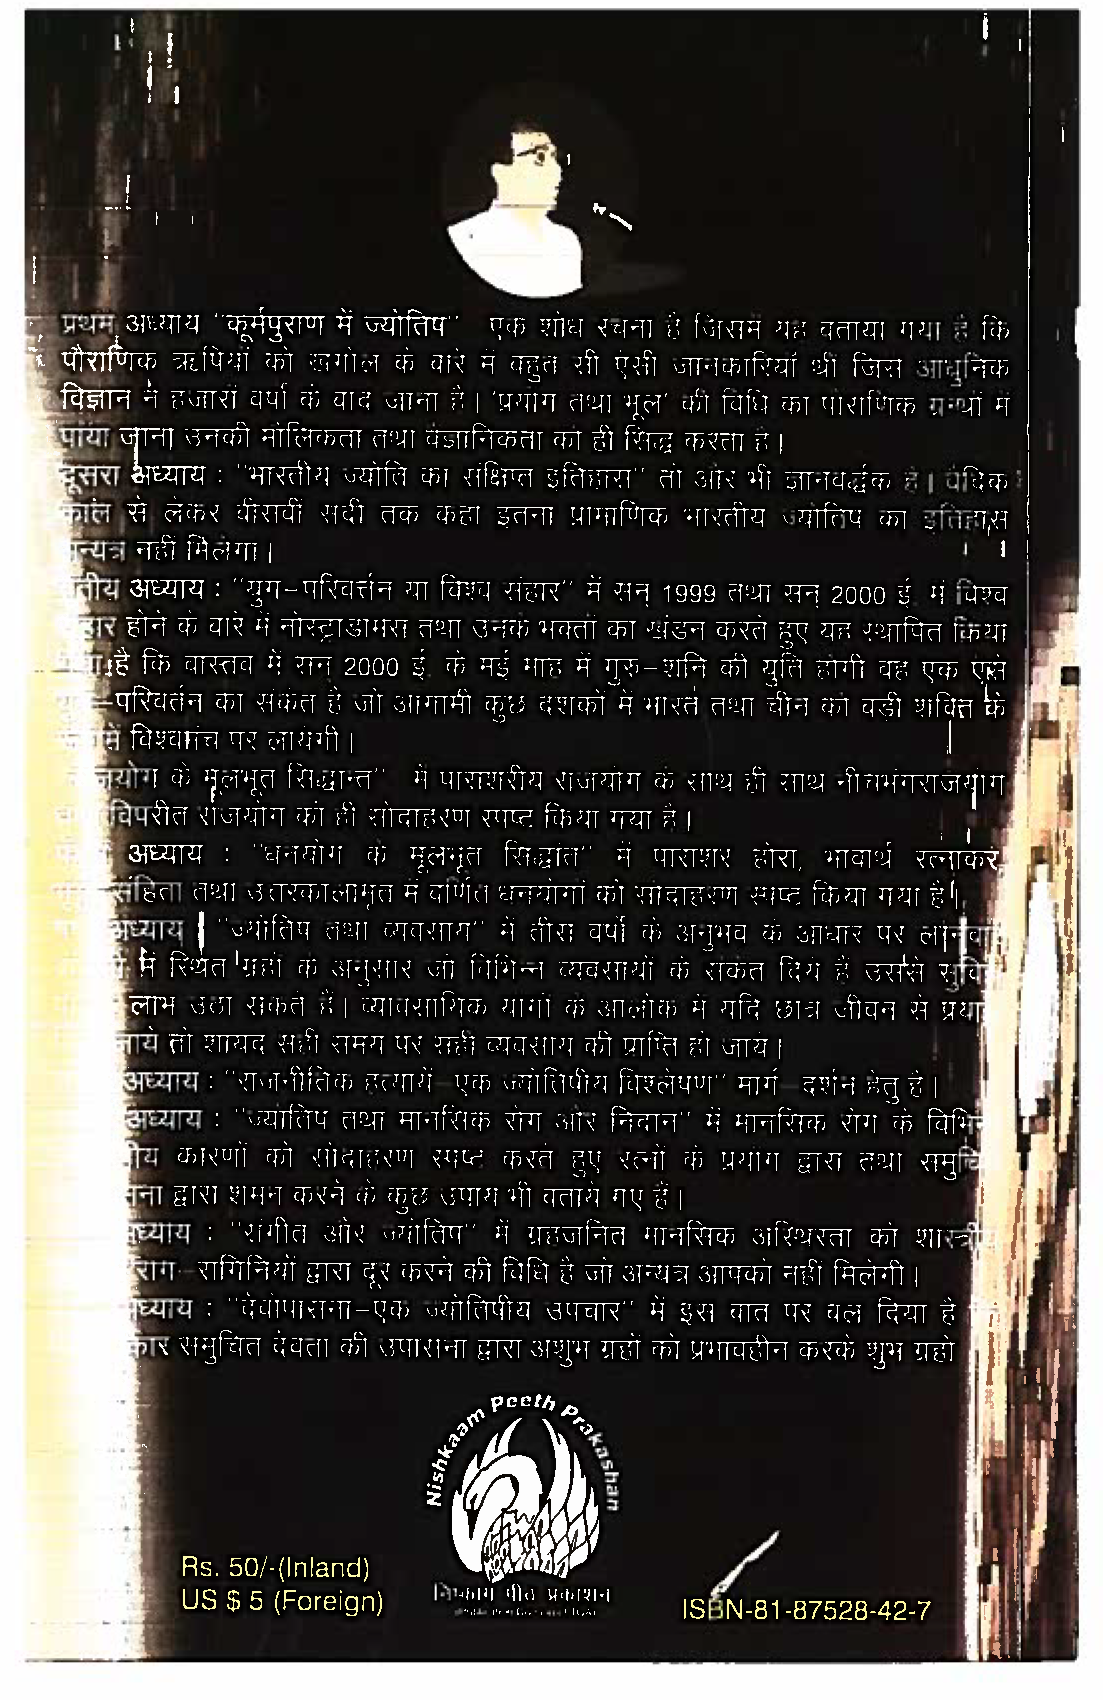 प्रथम अध्याय "कूर्मपुराण में ज्योतिष" एक शोध रचना है जिसमें यह बताया गया है कि
पौराणिक ऋषियों को खगोल के बारे में बहुत सी ऐसी जानकारियाँ थी जिसे आधुनिक
विज्ञान ने हजारों वर्षों के बाद जाना है। 'प्रयोग तथा भूल' की विधि का पौराणिक ग्रन्थों में
पाया जाना उनकी मौलिकता तथा वैज्ञानिकता को ही सिद्ध करता है।
दूसरा अध्याय : "भारतीय ज्योति का संक्षिप्त इतिहास" तो और भी ज्ञानवर्द्धक है। वैदिक
काल से लेकर बीसवीं सदी तक कहा इतना प्रामाणिक भारतीय ज्योतिष का इतिहास
अन्यत्र नहीं मिलेगा।
तृतीय अध्याय : "युग-परिवर्त्तन या विश्व संहार" में सन् 1999 तथा सन् 2000 ई. में विश्व
संहार होने के बारे में नोस्ट्राडामस तथा उनके भक्तों का खंडन करते हुए यह स्थापित किया
गया है कि वास्तव में सन् 2000 ई. के मई माह में गुरु-शनि की युति होगी वह एक ऐसे
युग-परिवर्तन का संकेत है जो आगामी कुछ दशकों में भारत तथा चीन को बड़ी शक्ति के
विश्वमंच पर लायेगी।
राजयोग के मूलभूत सिद्धान्त" में पाराशरीय राजयोग के साथ ही साथ नीचभंगराजयोग
विपरीत राजयोग को ही सोदाहरण स्पष्ट किया गया है।
अध्याय : "धनयोग के मूलभूत सिद्धात" में पाराशर होरा, भावार्थ रत्नाकर,
संहिता तथा उत्तरकालामृत में वर्णित धनयोगों को सोदाहरण स्पष्ट किया गया है।
अध्याय : "ज्योतिष तथा व्यवसाय" में तीस वर्षों के अनुभव के आधार पर
में स्थित ग्रहों के अनुसार जो विभिन्न व्यवसायों के संकेत दिये हैं उससे
लाभ उठा सकते हैं। व्यावसायिक योगों के आलोक में यदि छात्र जीवन से
जाये तो शायद सही समय पर सही व्यवसाय की प्राप्ति हो जाये।
अध्याय : "राजनीतिक हत्यायें-एक ज्योतिषीय विश्लेषण" मार्ग-दर्शन हेतु है।
अध्याय : "ज्योतिष तथा मानसिक रोग और निदान" में मानसिक रोग के
कारणों को सोदाहरण स्पष्ट करते हुए रत्नों के प्रयोग द्वारा तथा
द्वारा शमन करने के कुछ उपाय भी बताये गए हैं।
अध्याय : "संगीत और ज्योतिष" में ग्रहजनित मानसिक अस्थिरता को
राग-रागिनियों द्वारा दूर करने की विधि है जो अन्यत्र आपको नहीं मिलेगी।
अध्याय : "देवोपासना-एक ज्योतिषीय उपचार" में इस बात पर बल दिया है
समुचित देवता की उपासना द्वारा अशुभ ग्रहों को प्रभावहीन करके शुभ ग्रहो
Nishkaam Peeth Prakashan
निष्काम पीठ प्रकाशन
Rs. 50/-(Inland)
US $ 5 (Foreign)
ISBN-81-87528-42-7